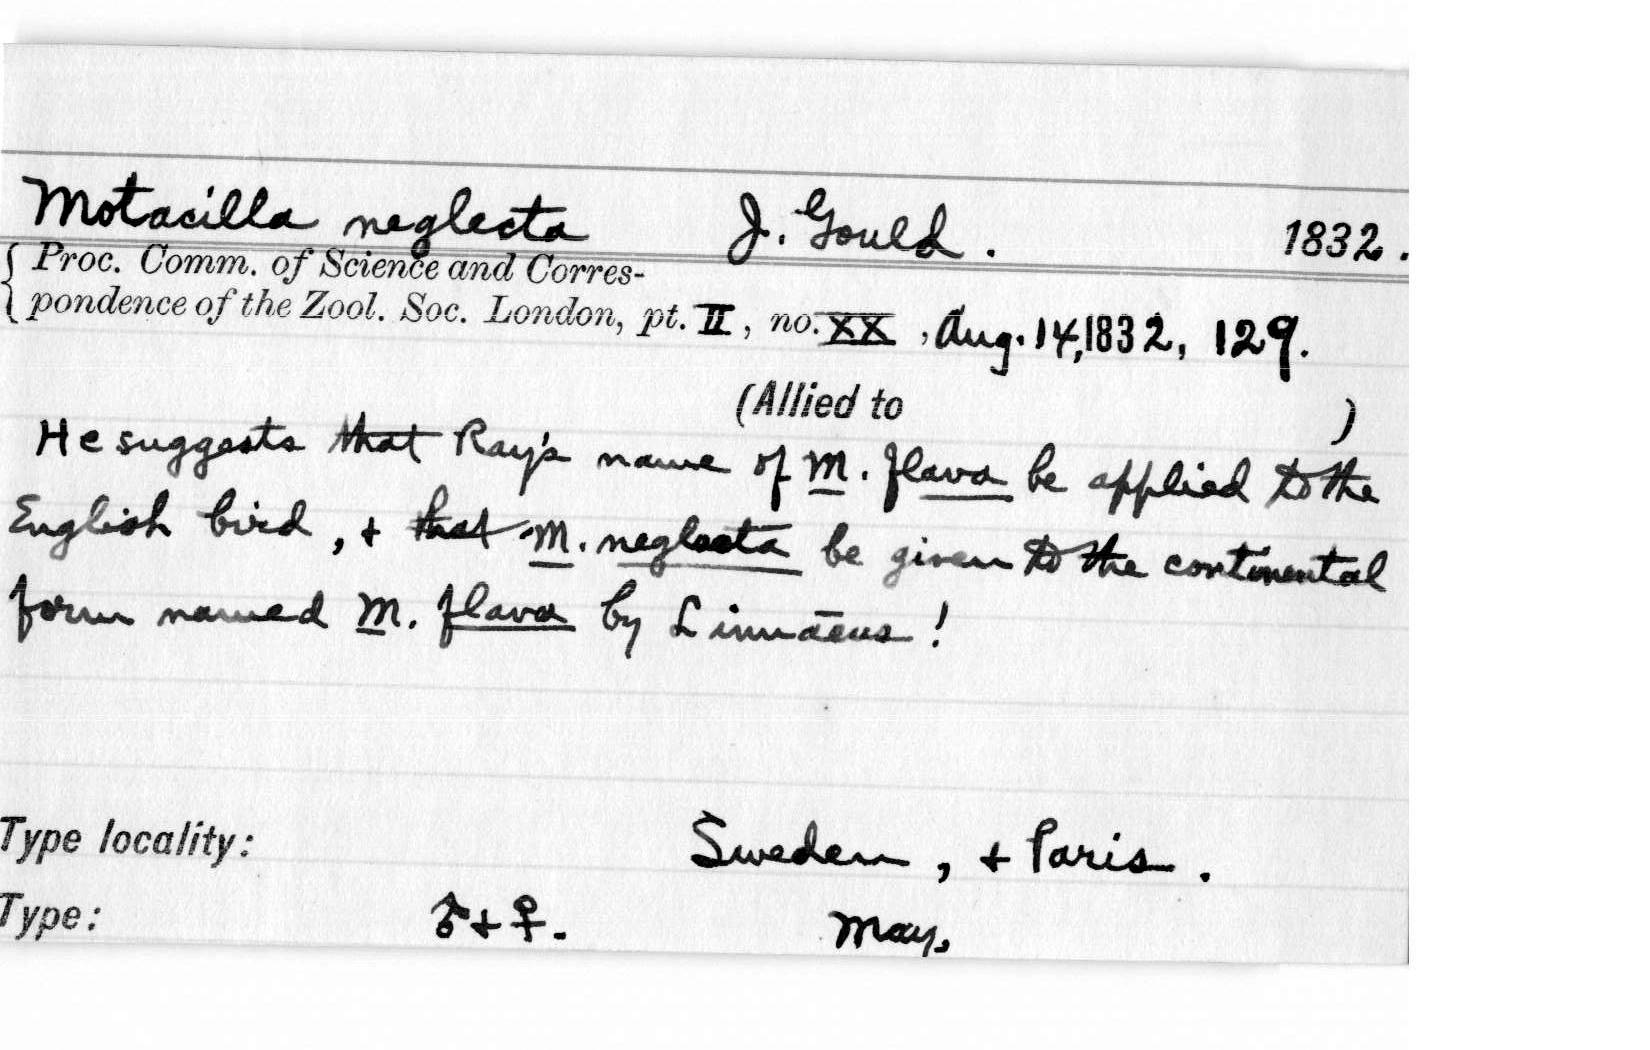 Motacilla neglecta J. Gould. 1832.
Proc. Comm. of Science and Corres-
pondence of the Zool. Soc. London, pt. II, no. XX, Aug. 14, 1832, 129.
(Allied to )
He suggests that Ray's name of M. flava be applied to the
English bird, + that M. neglecta be given to the continental
form named M. flava by Linnaeus!
Type locality: Sweden, + Paris.
Type: ♂ + ♀. May,